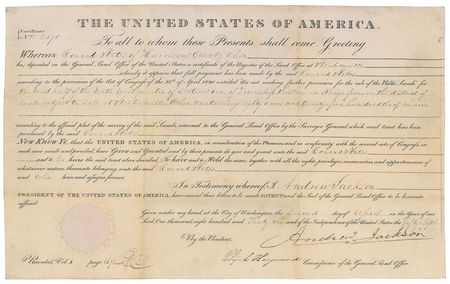 THE UNITED STATES OF AMERICA.
Certificate
To all to whom these Presents shall come, Greeting
Whereas Conrad States of Harrison County Ohio
has deposited in the General Land Office of the United States, a certificate of the Register of the Land Office at Steubenville
whereby it appears that full payment has been made by the said Conrad States
according to the provisions of the Act of Congress of the 24th of April 1820 entitled An act making further provision for the sale of the Public Lands for
according to the official plat of the survey of the said Lands returned to the General Land Office by the Surveyor General, which said tract has been
purchased by the said Conrad States
Now Know Ye, that the UNITED STATES OF AMERICA, in consideration of the Premises, and in conformity with the several acts of Congress, in
such case made and provided, have Given and Granted and by these presents do give and grant unto the said Conrad States
and to his heirs the said tract above described, To have and to Hold the same, together with all the rights, privileges, immunities, and appurtenances of
whatsoever nature thereunto belonging, unto the said Conrad States
heirs and assigns forever
In Testimony whereof I, Andrew Jackson
PRESIDENT OF THE UNITED STATES OF AMERICA, have caused these letters to be made PATENT, and the Seal of the General Land Office to be hereunto
affixed.
Given under my hand, at the City of Washington, the second day of April in the Year of our
Lord, One thousand, eight hundred and thirty one and of the Independence of the United States, the fifty fifth
By the President,
Andrew Jackson
Elijah Hayward Commissioner of the General Land Office.
Recorded, Vol. page